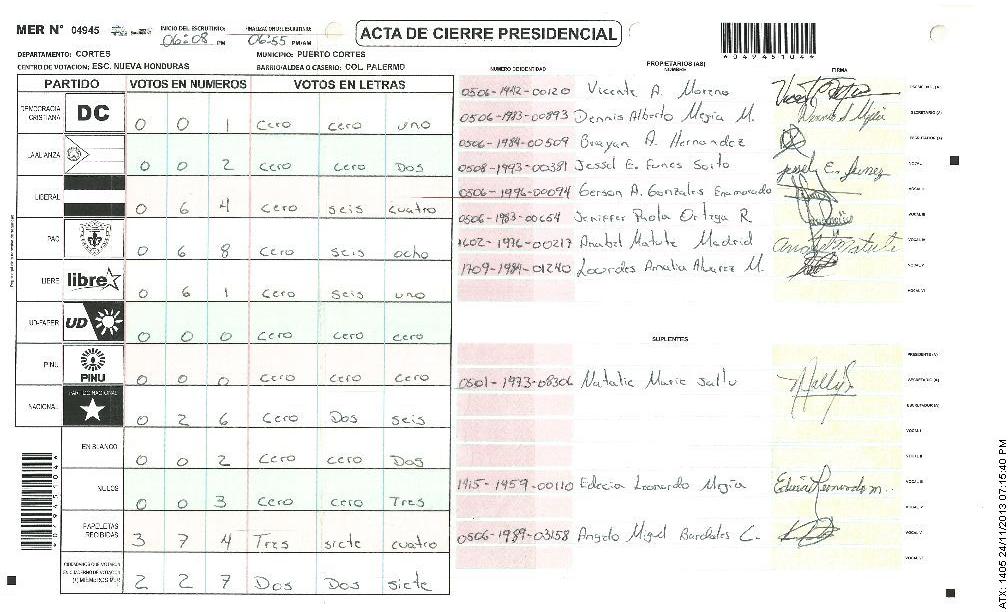 MER N° 04945 INICIO DEL ESCRUTINIO: 06:08 PM FINALIZACION DEL ESCRUTINIO: 06:55 PM/AM
ACTA DE CIERRE PRESIDENCIAL
*049451044*
DEPARTAMENTO: CORTES MUNICIPIO: PUERTO CORTES
CENTRO DE VOTACION: ESC. NUEVA HONDURAS BARRIO/ALDEA O CASERIO: COL. PALERMO
PARTIDO VOTOS EN NUMEROS VOTOS EN LETRAS
DEMOCRACIA CRISTIANA DC 0 0 1 cero cero uno
LA ALIANZA 0 0 2 cero cero Dos
LIBERAL 0 6 4 cero seis cuatro
PAC 0 6 8 cero seis ocho
LIBRE libre 0 6 1 cero seis uno
UD-FAPER UD 0 0 0 cero cero cero
PINU PINU 0 0 0 cero cero cero
NACIONAL PARTIDO NACIONAL 0 2 6 cero Dos seis
EN BLANCO 0 0 2 cero cero Dos
NULOS 0 0 3 cero cero Tres
PAPELETAS RECIBIDAS 3 7 4 Tres siete cuatro
CIUDADANOS QUE VOTARON EN CUADERNO DE VOTACION (+) MIEMBROS MER 2 2 7 Dos Dos siete
PROPIETARIOS (AS)
NUMERO DE IDENTIDAD NOMBRE FIRMA
0506-1942-00120 Vicente A. Moreno PRESIDENTE (A)
0506-1983-00893 Dennis Alberto Mejia M. SECRETARIO (A)
0506-1984-00509 Brayan A. Hernandez ESCRUTADOR (A)
0508-1993-00381 Jessel E. Funes VOCAL I
0506-1996-00094 Gerson A. Gonzales Enamorado VOCAL II
0506-1983-00654 Jeniffer Paola Ortega R VOCAL III
1602-1976-00217 Anabel Matute Madrid VOCAL IV
1709-1984-01240 Lourdes Amalia Alvarez M. VOCAL V
VOCAL VI
SUPLENTES
PRESIDENTE (A)
0501-1973-08306 Natalie Marie SECRETARIO (A)
ESCRUTADOR (A)
VOCAL I
VOCAL II
1915-1959-00110 Edecia Leonardo Mejia VOCAL III
VOCAL IV
0506-1989-03158 Angelo Miguel Bardales C. VOCAL V
VOCAL VI
ATX: 1405 24/11/2013 07:15:40 PM